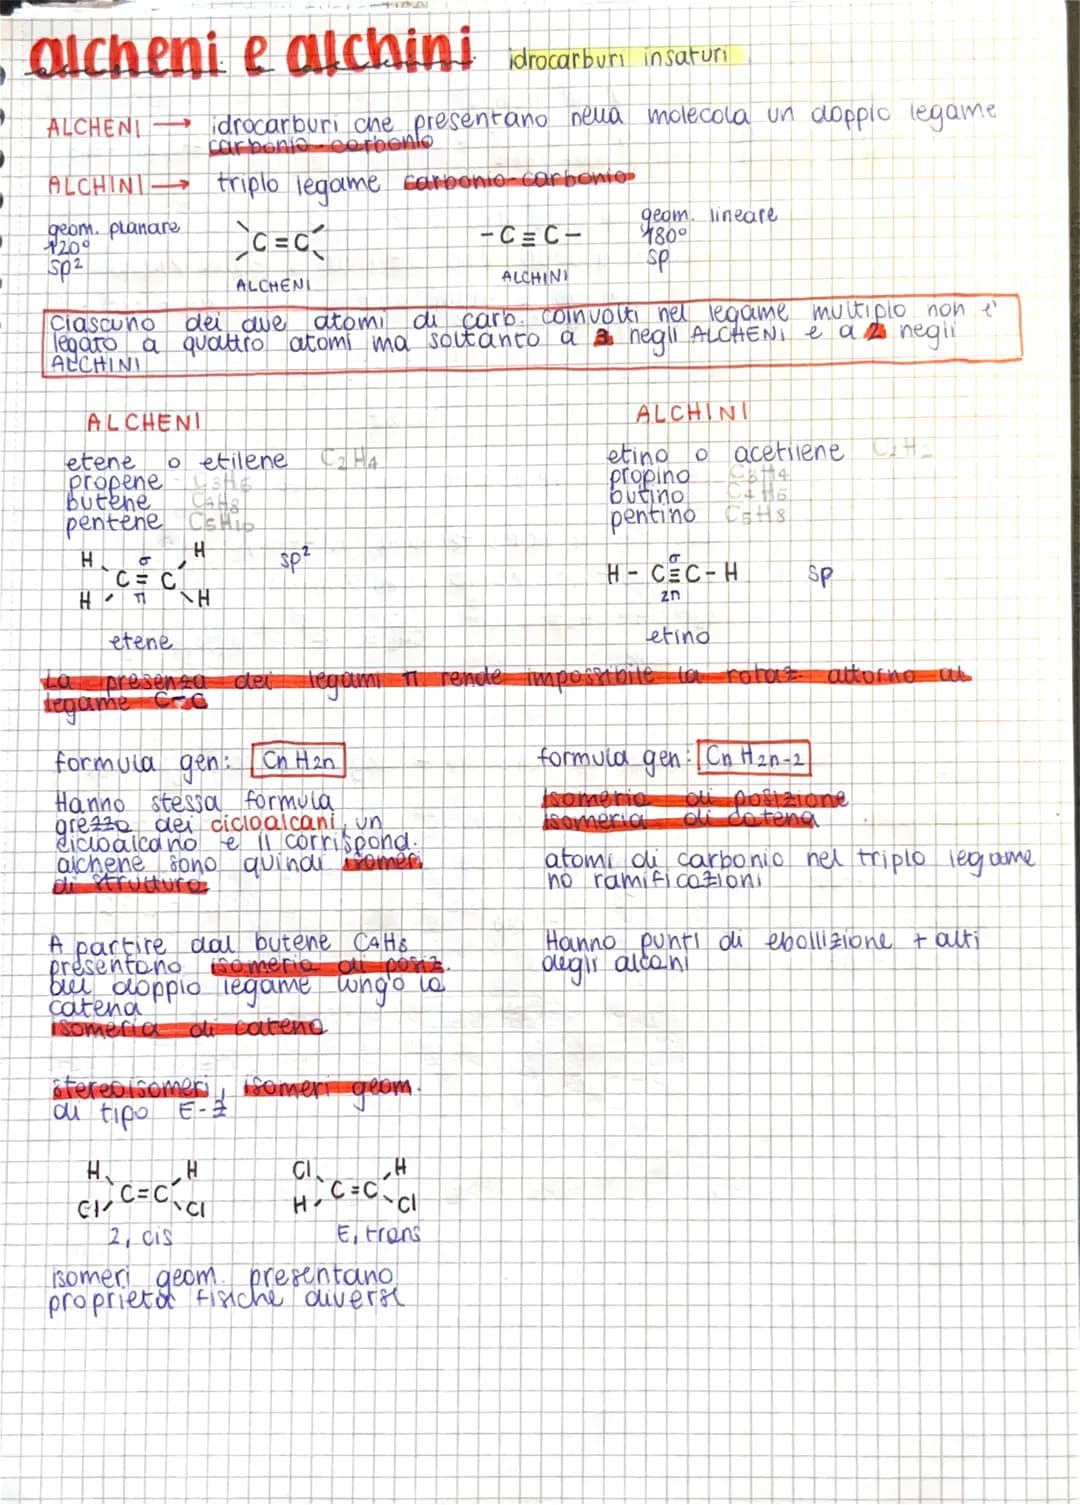 alcheni e alchini idrocarburi insaturi
ALCHENI → idrocarburi che presentano nella molecola un doppio legame
carbonio-carbonio
ALCHINI → triplo legame carbonio-carbonio
geom. planare
120°
sp²
C=C
ALCHENI
-C≡C-
ALCHINI
geom. lineare
180°
sp
Ciascuno dei due atomi di carb. coinvolti nel legame multiplo non è
legato a quattro atomi ma soltanto a 3 negli ALCHENI e a 2 negli
ALCHINI
ALCHENI
etene o etilene C2H4
propene C3H6
butene C4H8
pentene C5H10
H H
σ
C=C sp²
H π H
etene
ALCHINI
etino o acetilene C2H2
propino C3H4
butino C4H6
pentino C5H8
σ
H-C≡C-H sp
2π
etino
La presenza dei legami π rende impossibile la rotaz. attorno al
legame C-C
formula gen: CnH2n
Hanno stessa formula
grezza dei cicloalcani, un
cicloalcano e il corrispond.
alchene sono quindi isomeri
di struttura
A partire dal butene C4H8
presentano isomeria di posiz.
del doppio legame lungo la
catena
isomeria di catena
stereoisomeri, isomeri geom.
di tipo E-Z
H H
C=C
Cl Cl
Z, cis
Cl H
C=C
H Cl
E, trans
isomeri geom. presentano
proprietà fisiche diverse
formula gen: CnH2n-2
Isomeria di posizione
isomeria di catena
atomi di carbonio nel triplo legame
no ramificazioni
Hanno punti di ebollizione + alti
degli alcani